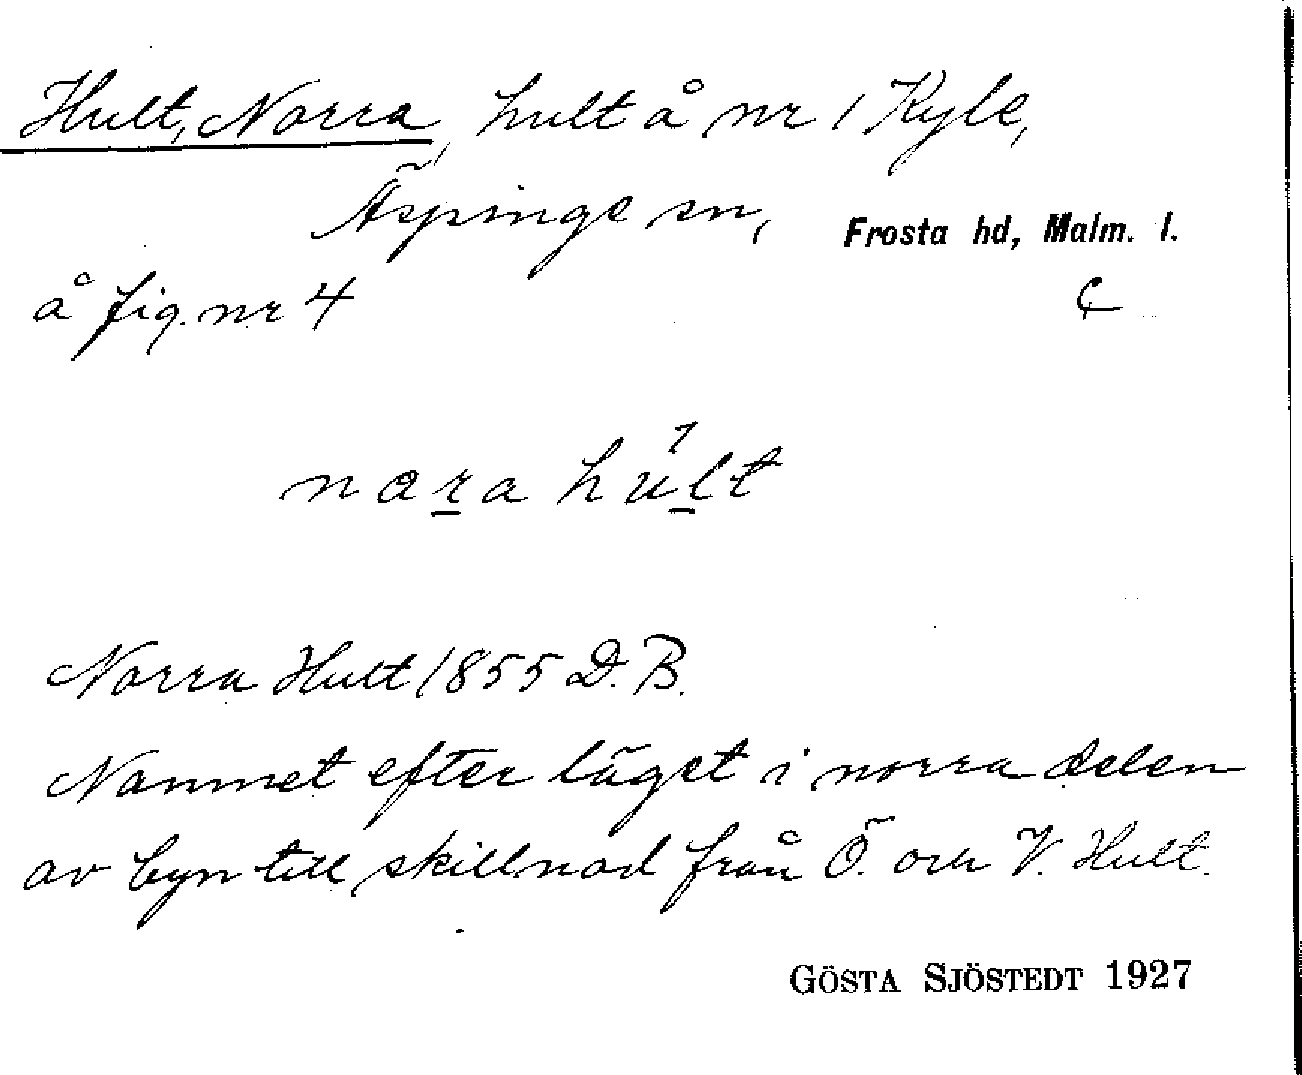 Hult, Norra, hult å nr 1 Kyle,
Äspinge sn, Frosta hd, Malm. l.
å fig. nr 4
nara hult
Norra Hult 1855 D.B.
Namnet efter läget i norra delen
av byn till skillnad från Ö. och V. Hult.
GÖSTA SJÖSTEDT 1927